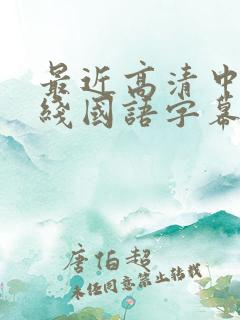 最近高清中
綫國語字幕
唐伯超
未经同意禁止转载